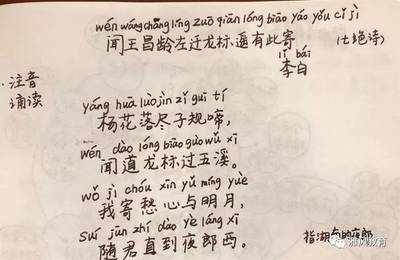 wén wáng chāng líng zuǒ qiān lóng biāo yáo yǒu cǐ jì
闻王昌龄左迁龙标遥有此寄 (七绝诗)
lǐ bái
李白
注音
诵读
yáng huā luò jìn zǐ guī tí
杨花落尽子规啼，
wén dào lóng biāo guò wǔ xī
闻道龙标过五溪。
wǒ jì chóu xīn yǔ míng yuè
我寄愁心与明月，
suí jūn zhí dào yè láng xī
随君直到夜郎西。
指湖南的夜郎